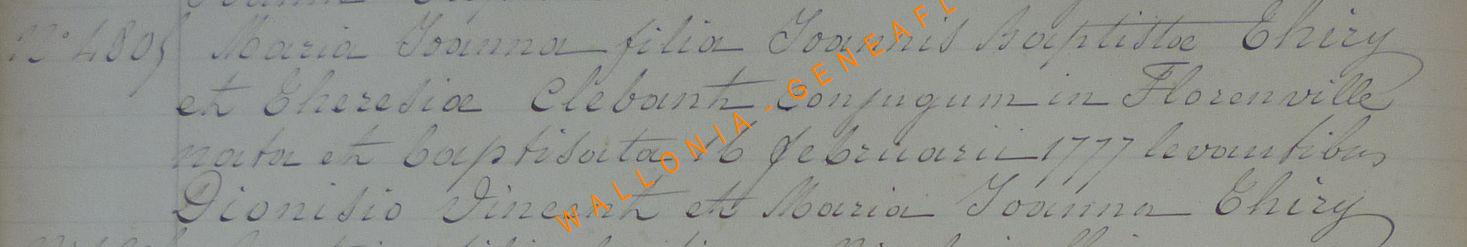 N° 4805 Maria Joanna filia Joannis baptistæ Thiry
et Theresiæ Clebant Conjugum in Florenville
nata et baptisata 16 februarii 1777 levantibus
Dionisio Vincent et Maria Joanna Thiry
WALLONIA - GENEAFL